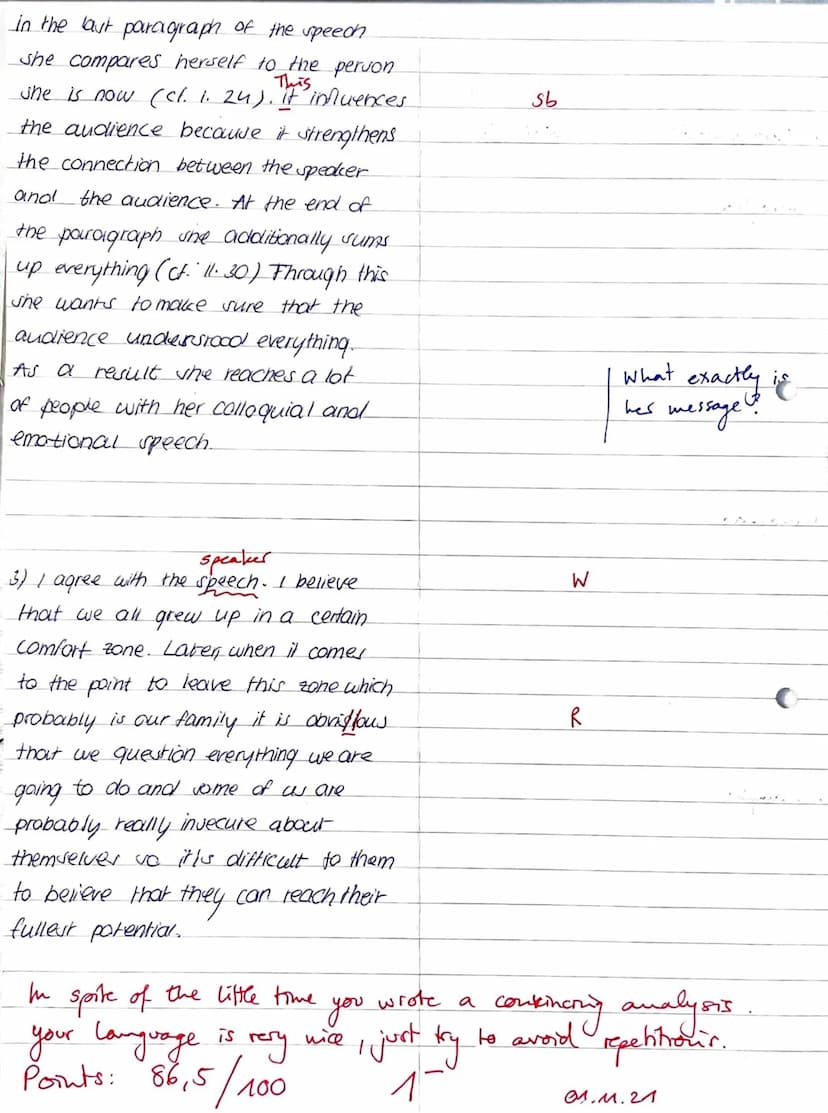 in the last paragraph of the speech
she compares herself to the person
This
she is now (cf. l. 24). It influences
sb
the audience because it strengthens
the connection between the speaker
and the audience. At the end of
the paragraph she additionally sums
up everything (cf. ll. 30) Through this
she wants to make sure that the
audience understood everything.
As a result she reaches a lot
of people with her colloquial and
emotional speech.
What exactly is
her message?
speaker
3) I agree with the speech. I believe
W
that we all grew up in a certain
comfort zone. Later, when it comes
to the point to leave this zone which
probably is our family it is obvious
R
that we question everything we are
going to do and some of us are
probably really insecure about
themselves so it is difficult to them
to believe that they can reach their
fullest potential.
In spite of the little time you wrote a convincing analysis.
Your language is very nice, just try to avoid repetitions.
Points: 86,5/100 1-
01.11.21